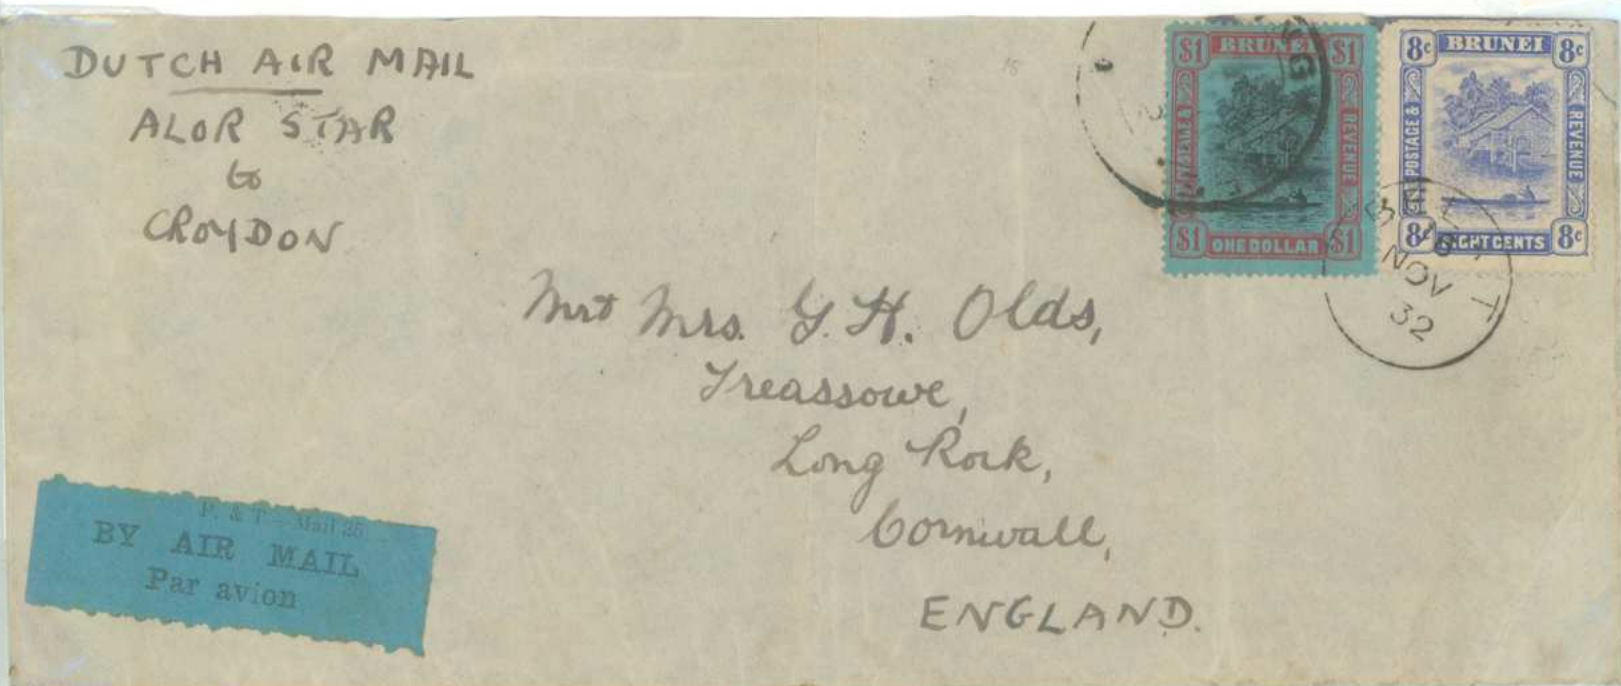 DUTCH AIR MAIL
ALOR STAR
to
CROYDON
$1 BRUNEI $1
POSTAGE & REVENUE
$1 ONE DOLLAR $1
8c BRUNEI 8c
POSTAGE & REVENUE
8c EIGHT CENTS 8c
NOV
32
Mr & Mrs. G. H. Olds,
Treassowe,
Long Rock,
Cornwall,
ENGLAND.
P. & T. Mail 25
BY AIR MAIL
Par avion